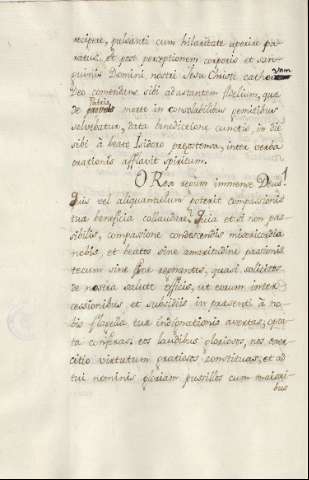 recipere, pulsanti cum hilaritate aperire pa-
ratus, et post perceptionem corporis et san-
guinis Domini nostri Jesu Christi
Deo comendans sibi adstantem fidelium, que
de Patris morte in consolabilibus gemitibus
salvabatur, data benedictione cunctis, in die
sibi à beato Isidoro prefotensa, inter verba
orationis afflavit spiritum.
O Rex regum immense Deus!
Quis vel aliquantulum poterit compassionis
tua beneficia collaudare? Quia et si non pas-
sibilis, compassione condescendis misericordia
nobis, et beatos sine amaritudine passionis
tecum sine fine regnantes, quasi solicitos
de nostra salute efficis, ut eorum inter-
cessionibus et subsidiis in presenti à no-
bis flagella tua indignationis avertas, opta-
ta conferas, eos laudibus gloriosos, nos exer-
citio virtutum gratiosos constituas, et ad
tui nominis gloriam pussillos cum maiori-
bus